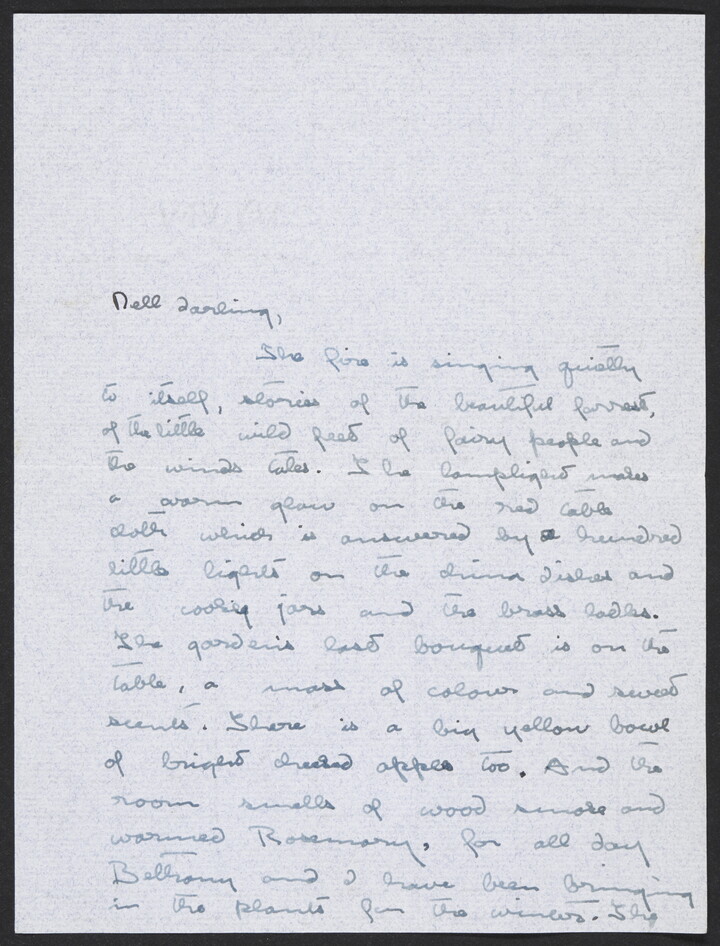 Nell darling,
The fire is singing quietly
to itself, stories of the beautiful forrest,
of the little wild feet of fairy people and
the winds tales. The lamplight makes
a warm glow on the red table
cloth which is answered by a hundred
little lights on the china dishes and
the cooky jars and the brass ladles.
The garden's last bouquet is on the
table, a mass of colour and sweet
scents. There is a big yellow bowl
of bright cheeked apples too. And the
room smells of wood smoke and
warmed Rosemary, for all day
Bethany and I have been bringing
in the plants for the winter. The